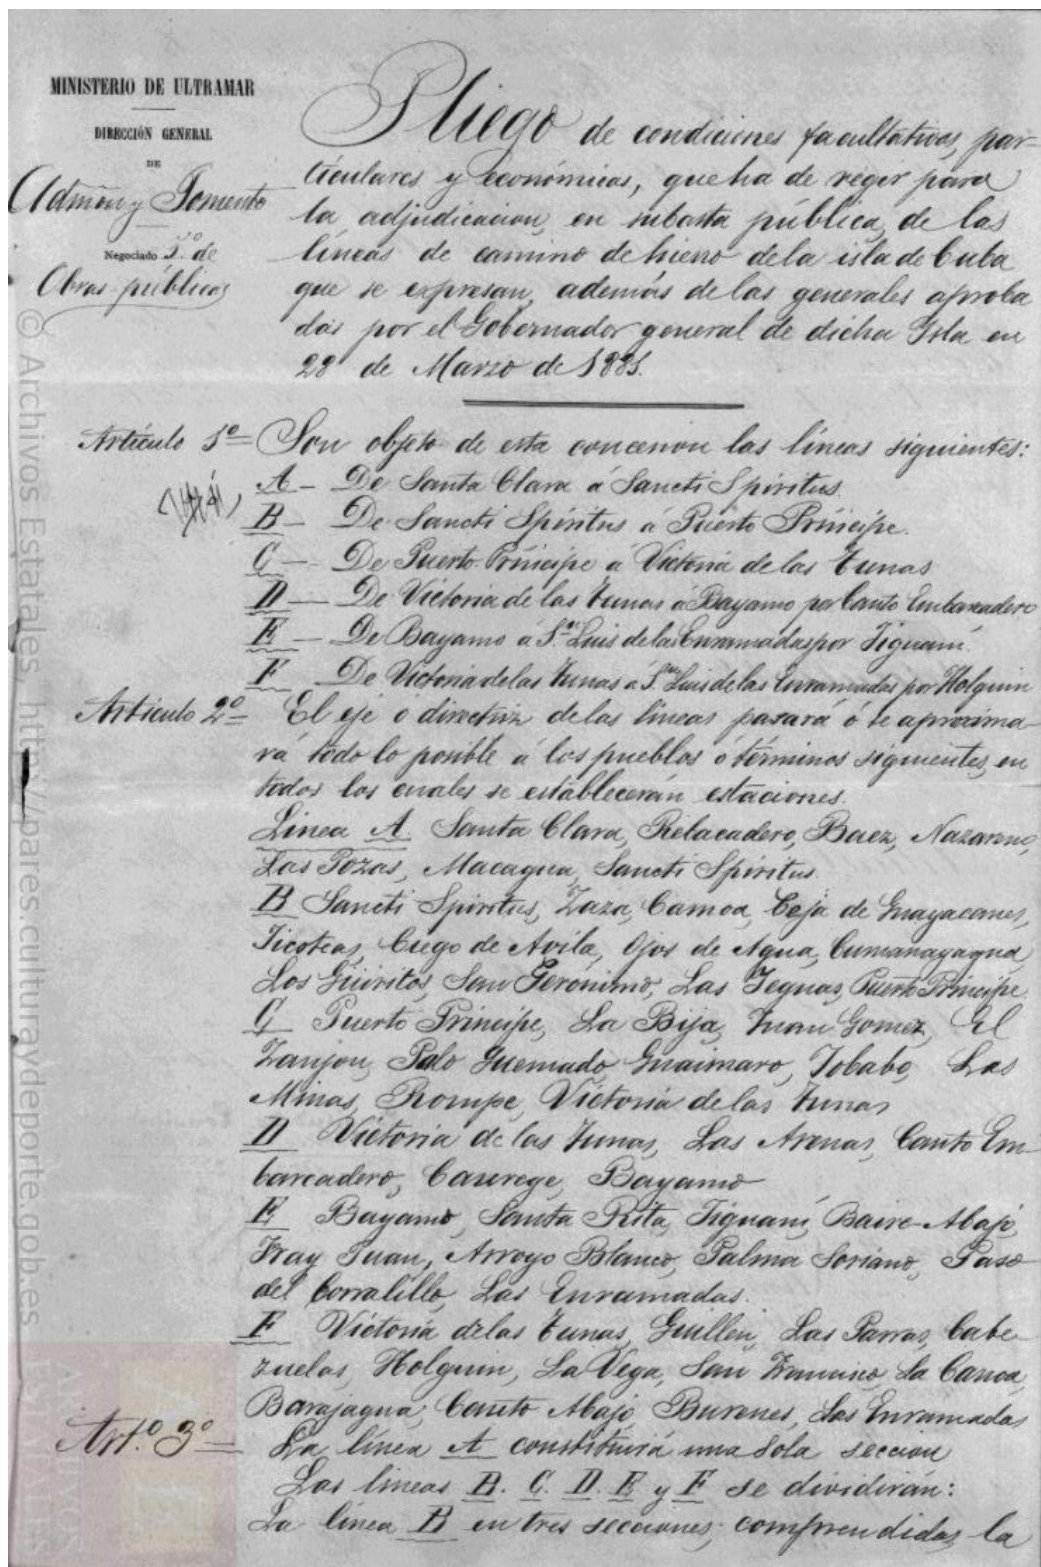 MINISTERIO DE ULTRAMAR
DIRECCIÓN GENERAL
DE
Admon y Fomento
Negociado 5º de
Obras públicas
Pliego de condiciones facultativas, par-
ticulares y económicas, que ha de regir para
la adjudicacion, en subasta pública, de las
líneas de camino de hierro de la isla de Cuba
que se expresan, además de las generales aproba
das por el Gobernador general de dicha Isla en
28 de Marzo de 1881.
Artículo 1º = Son objeto de esta concesion las líneas siguientes:
A - De Santa Clara á Sancti Spíritus.
B - De Sancti Spíritus á Puerto Príncipe.
C - De Puerto-Príncipe a Victoria de las Tunas
D - De Victoria de las Tunas á Bayamo por Cauto Embarcadero
E - De Bayamo á Sn Luis de las Enramadas por Jiguaní.
F De Victoria de las Tunas á Sn Luis de las Enramadas por Holguin
Artículo 2º = El eje o directriz de las líneas pasará ó se aproxima-
rá todo lo posible á los pueblos ó términos siguientes, en
todos los cuales se establecerán estaciones.
Linea A. Santa Clara, Rebacadero, Baez, Nazareno,
Las Pozas, Macagua, Sancti Spiritus.
B Sancti Spiritus, Zaza, Camoa, Ceja de Guayacanes,
Jicoteas, Ciego de Avila, Ojos de Agua, Cumanayagua,
Los Güiritos, San Gerónimo, Las Yeguas, Puerto Principe
C Puerto Principe, La Bija, Juan Gomez, El
Zanjon, Palo Quemado, Guaimaro, Jobabo, Las
Minas, Rompe, Victoria de las Tunas
D Victoria de las Tunas, Las Arenas, Cauto Em-
barcadero, Caurege, Bayamo
E Bayamo, Santa Rita, Jiguaní, Baire-Abajo,
Fray Juan, Arroyo Blanco, Palma Soriano, Paso
del Corralillo, Las Enramadas.
F Victoria de las Tunas, Guillen, Las Parras, Cabe-
zuelas, Holguin, La Vega, San Francisco, La Canoa,
Barajagua, Cauto Abajo, Burenes, Las Enramadas
Art.º 3º = La línea A constituirá una sola seccion
Las lineas B. C. D. E y F se dividirán:
La línea B en tres secciones; comprendidas la
© Archivos Estatales, http://pares.culturaydeporte.gob.es
ARCHIVOS
ESTATALES